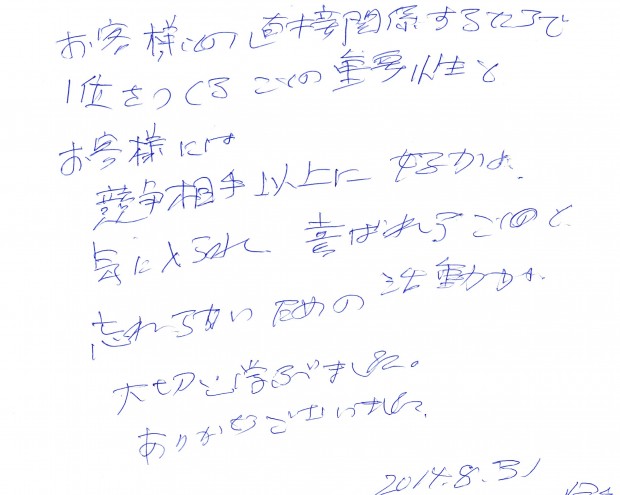 お客様との直接関係するところで
1位をつくることの重要性と
お客様には
競争相手以上に好かれ
気に入られ、喜ばれることと
忘れられないための活動が
大切と学びました。
ありがとうございました。
2014.8.31